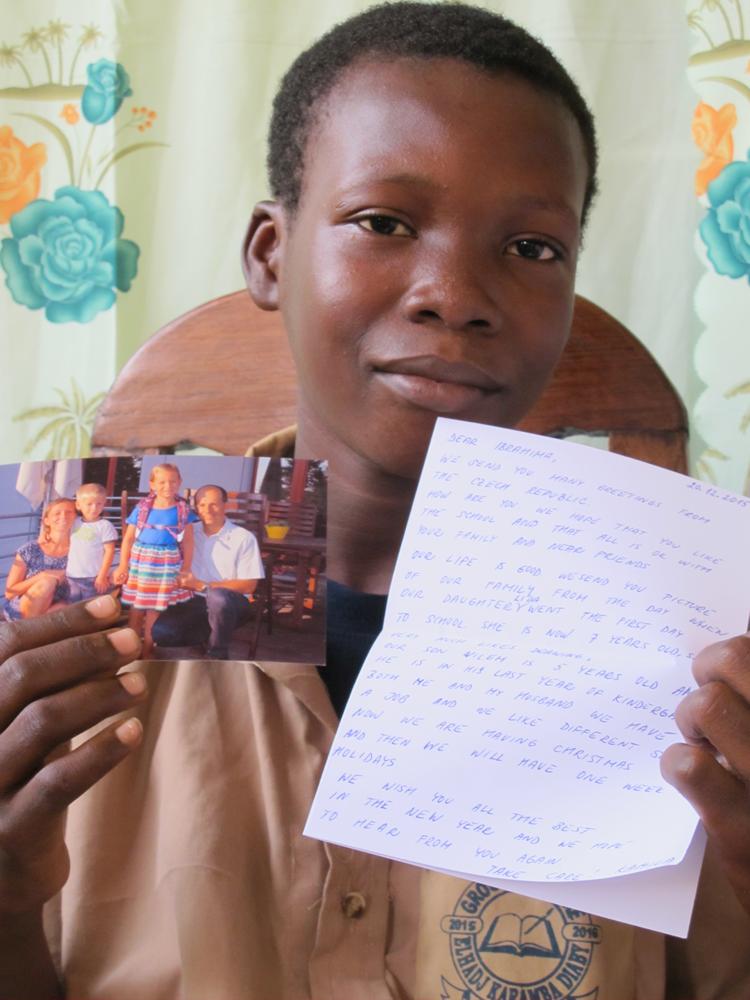 20.12.2015
DEAR IBRAHIMA,
WE SEND YOU MANY GREETINGS FROM
THE CZECH REPUBLIC
HOW ARE YOU WE HOPE THAT YOU LIKE
THE SCHOOL AND THAT ALL IS OK WITH
YOUR FAMILY AND NEAR FRIENDS
OUR LIFE IS GOOD WE SEND YOU PICTURE
OF OUR FAMILY FROM THE DAY WHEN
OUR DAUGHTER WENT THE FIRST DAY
TO SCHOOL SHE IS NOW 7 YEARS OLD. S
VERY MUCH LIKES DRAWING.
OUR SON VILEM IS 5 YEARS OLD AN
HE IS IN HIS LAST YEAR OF KINDERGA
BOTH ME AND MY HUSBAND WE HAVE
A JOB AND WE LIKE DIFFERENT
NOW WE ARE HAVING CHRISTMAS
AND THEN WE WILL HAVE ONE WEEK
HOLIDAYS
WE WISH YOU ALL THE BEST
IN THE NEW YEAR AND WE HOPE
TO HEAR FROM YOU AGAIN
TAKE CARE!
GRO
2015 2016
ELHADJ KARAMBA DIABY